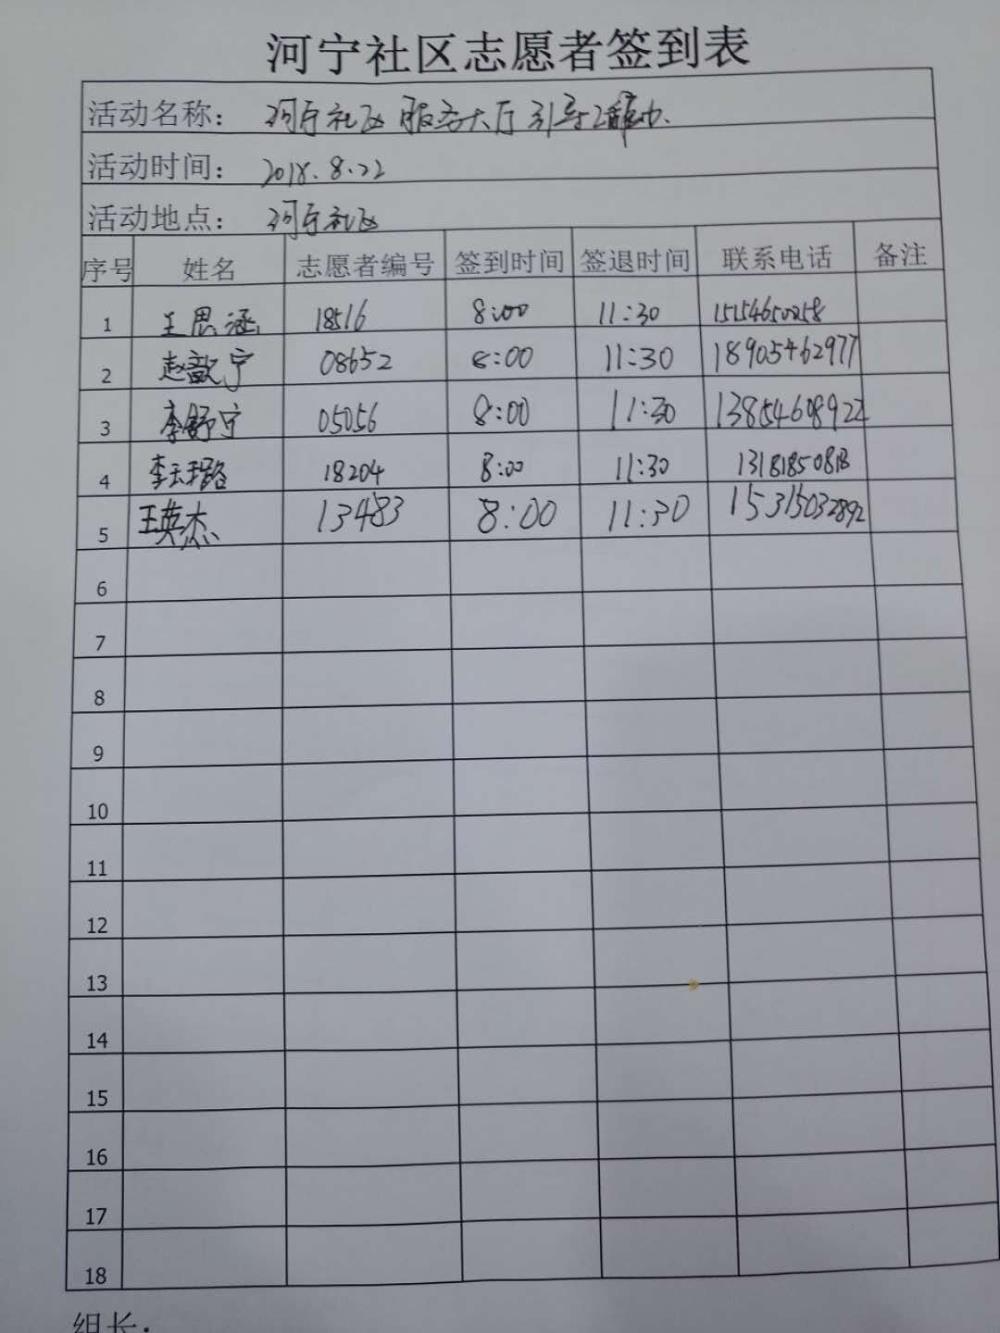 河宁社区志愿者签到表
活动名称： 河宁社区 服务大厅 引导
活动时间： 2018.8.22
活动地点： 河宁社区
序号 姓名 志愿者编号 签到时间 签退时间 联系电话 备注
1 王思涵 18516 8:00 11:30 15154650258
2 赵歆宁 08652 8:00 11:30 18905462977
3 李舒宁 05056 8:00 11:30 13854608922
4 李玉璐 18204 8:00 11:30
5 王英杰 13483 8:00 11:30 15315032892
6
7
8
9
10
11
12
13
14
15
16
17
18
组长：